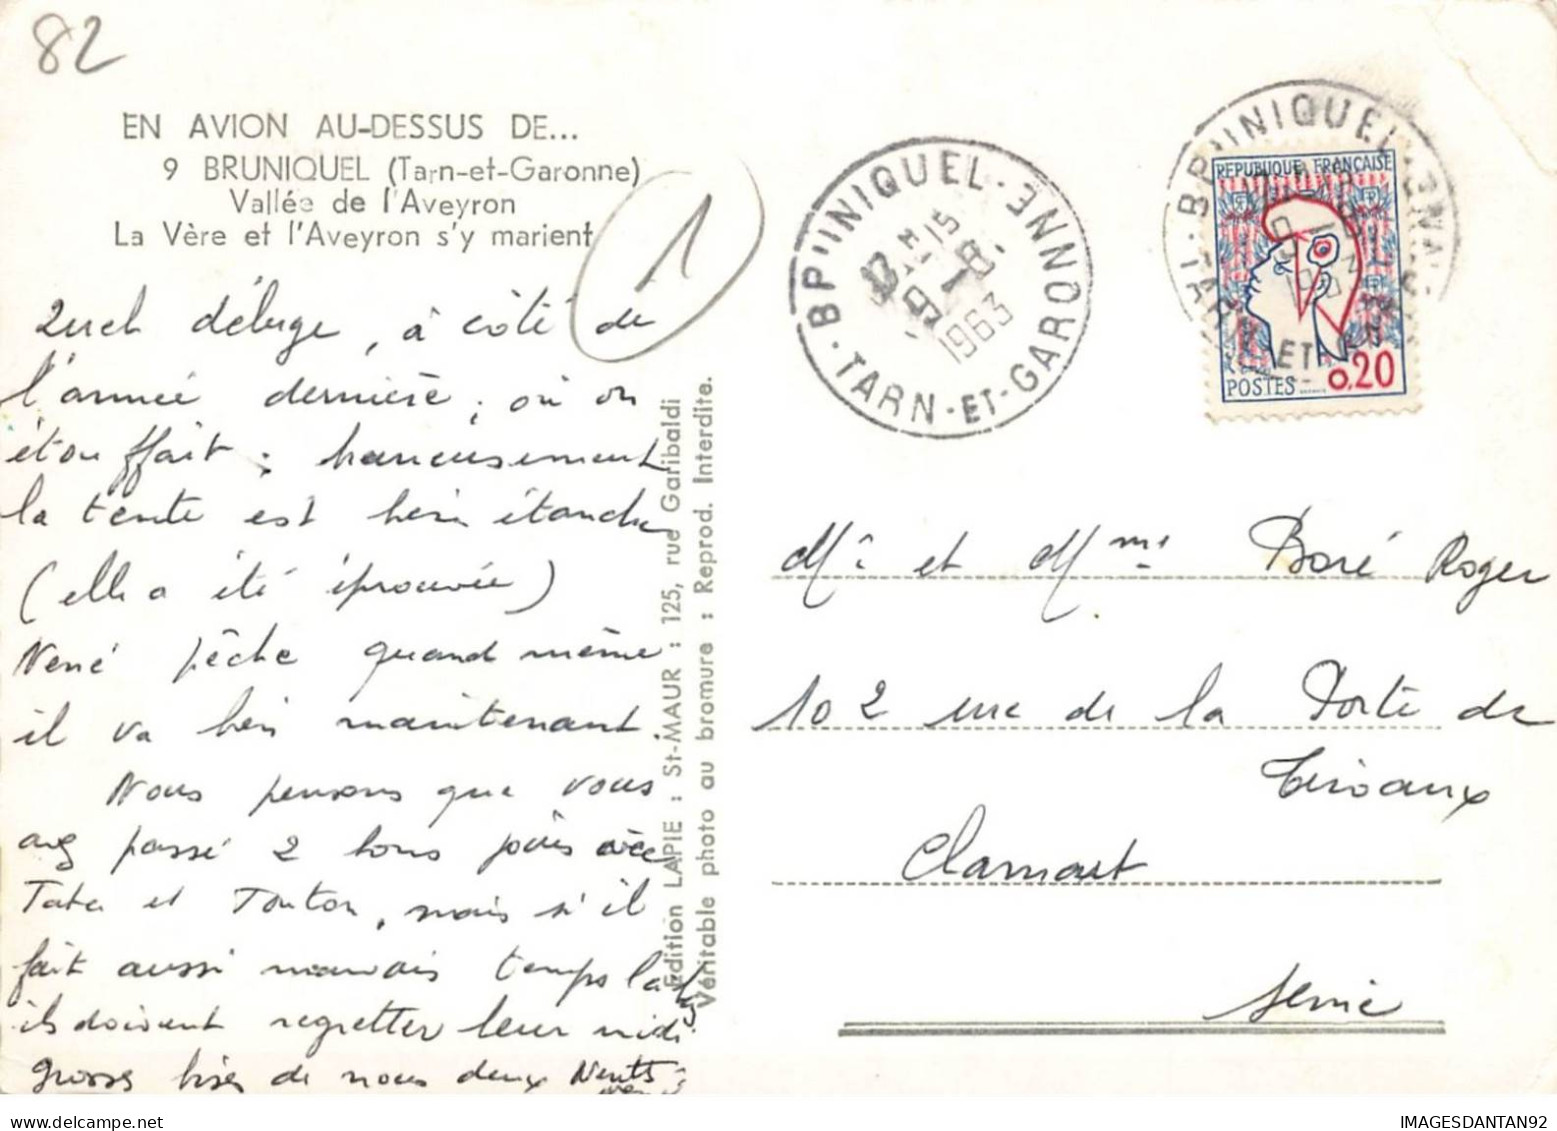 82
EN AVION AU-DESSUS DE...
9 BRUNIQUEL (Tarn-et-Garonne)
Vallée de l'Aveyron
La Vère et l'Aveyron s'y marient
1
Quel déluge, à côté de
l'année dernière, où on
étouffait; heureusement
la tente est bien étanche
(elle a été éprouvée)
René pêche quand même
il va bien maintenant.
Nous pensons que vous
avez passé 2 bons jours avec
Tata et Tonton, mais s'il
fait aussi mauvais temps là-bas
ils doivent regretter leur midi
grosses bises de nous deux
Edition LAPIE : St-MAUR : 125, rue Garibaldi
Véritable photo au bromure : Reprod. Interdite.
BRUNIQUEL · TARN-ET-GARONNE
1963
BRUNIQUEL · TARN-ET-GARONNE
REPUBLIQUE FRANÇAISE
POSTES 0,20
Mr et Mme Boré Roger
102 rue de la Porte de
Trivaux
Clamart
Seine
IMAGESDANTAN92